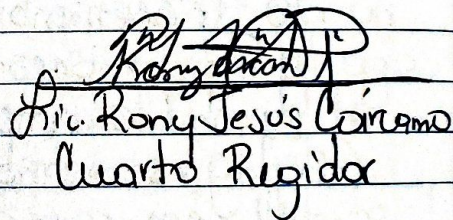 Lic. Rony Jesús Cárcamo
Cuarto Regidor